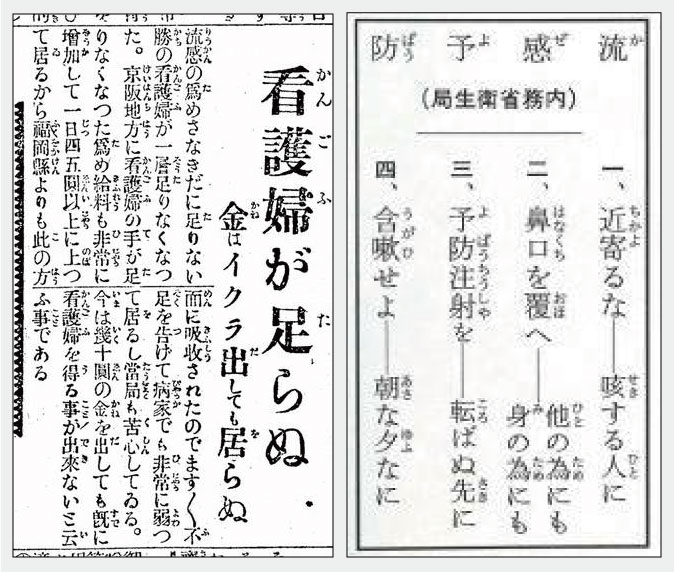 看護婦が足らぬ
金はイクラ出しても居らぬ
流感の爲めさなきだに足りない
勝の看護婦が一層足りなくなつ
た。京阪地方に看護婦の手が足
りなくなつた爲め給料も非常に
増加して一日四五圓以上に上つ
て居るから福岡縣よりも此の方
面に吸收されたのでます〱不
足を告げて病家でも非常に弱つ
て居るし當局も苦心してゐる。
今は幾十圓の金を出しても既に
看護婦を得る事が出來ないと云
ふ事である
流感予防
(内務省衛生局)
一、近寄るな――咳する人に
二、鼻口を覆へ――他の為にも
身の為にも
三、予防注射を――転ばぬ先に
四、含嗽せよ――朝な夕なに